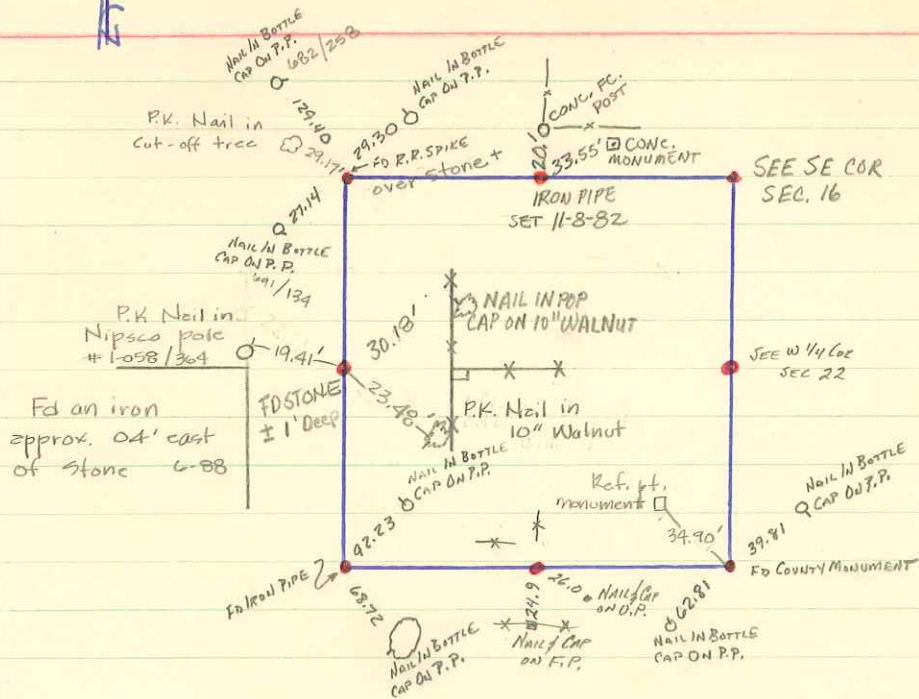 NAIL IN BOTTLE
CAP ON P.P.
682/258
129.40
NAIL IN BOTTLE
CAP ON P.P.
29.30
P.K. Nail in
Cut-off tree
29.17'
FD R.R. SPIKE
over Stone +
CONC. FC.
POST
20.1
33.55'
CONC.
MONUMENT
IRON PIPE
SET 11-8-82
SEE SE COR
SEC. 16
27.14
NAIL IN BOTTLE
CAP ON P.P.
691/134
P.K. Nail in
Nipsco pole
# 1-058/364
19.41'
30.18'
NAIL IN POP
CAP ON 10" WALNUT
SEE W 1/4 COR
SEC 22
FD STONE
± 1' Deep
23.48'
P.K. Nail in
10" Walnut
Fd an iron
approx. 04' east
of Stone 6-88
NAIL IN BOTTLE
CAP ON P.P.
92.23
Ref. pt.
monument
34.90'
NAIL IN BOTTLE
CAP ON P.P.
39.81
FD COUNTY MONUMENT
FD IRON PIPE
68.72
NAIL IN BOTTLE
CAP ON P.P.
24.9
NAIL & CAP
ON F.P.
26.0
NAIL & CAP
ON O.P.
62.81
NAIL IN BOTTLE
CAP ON P.P.